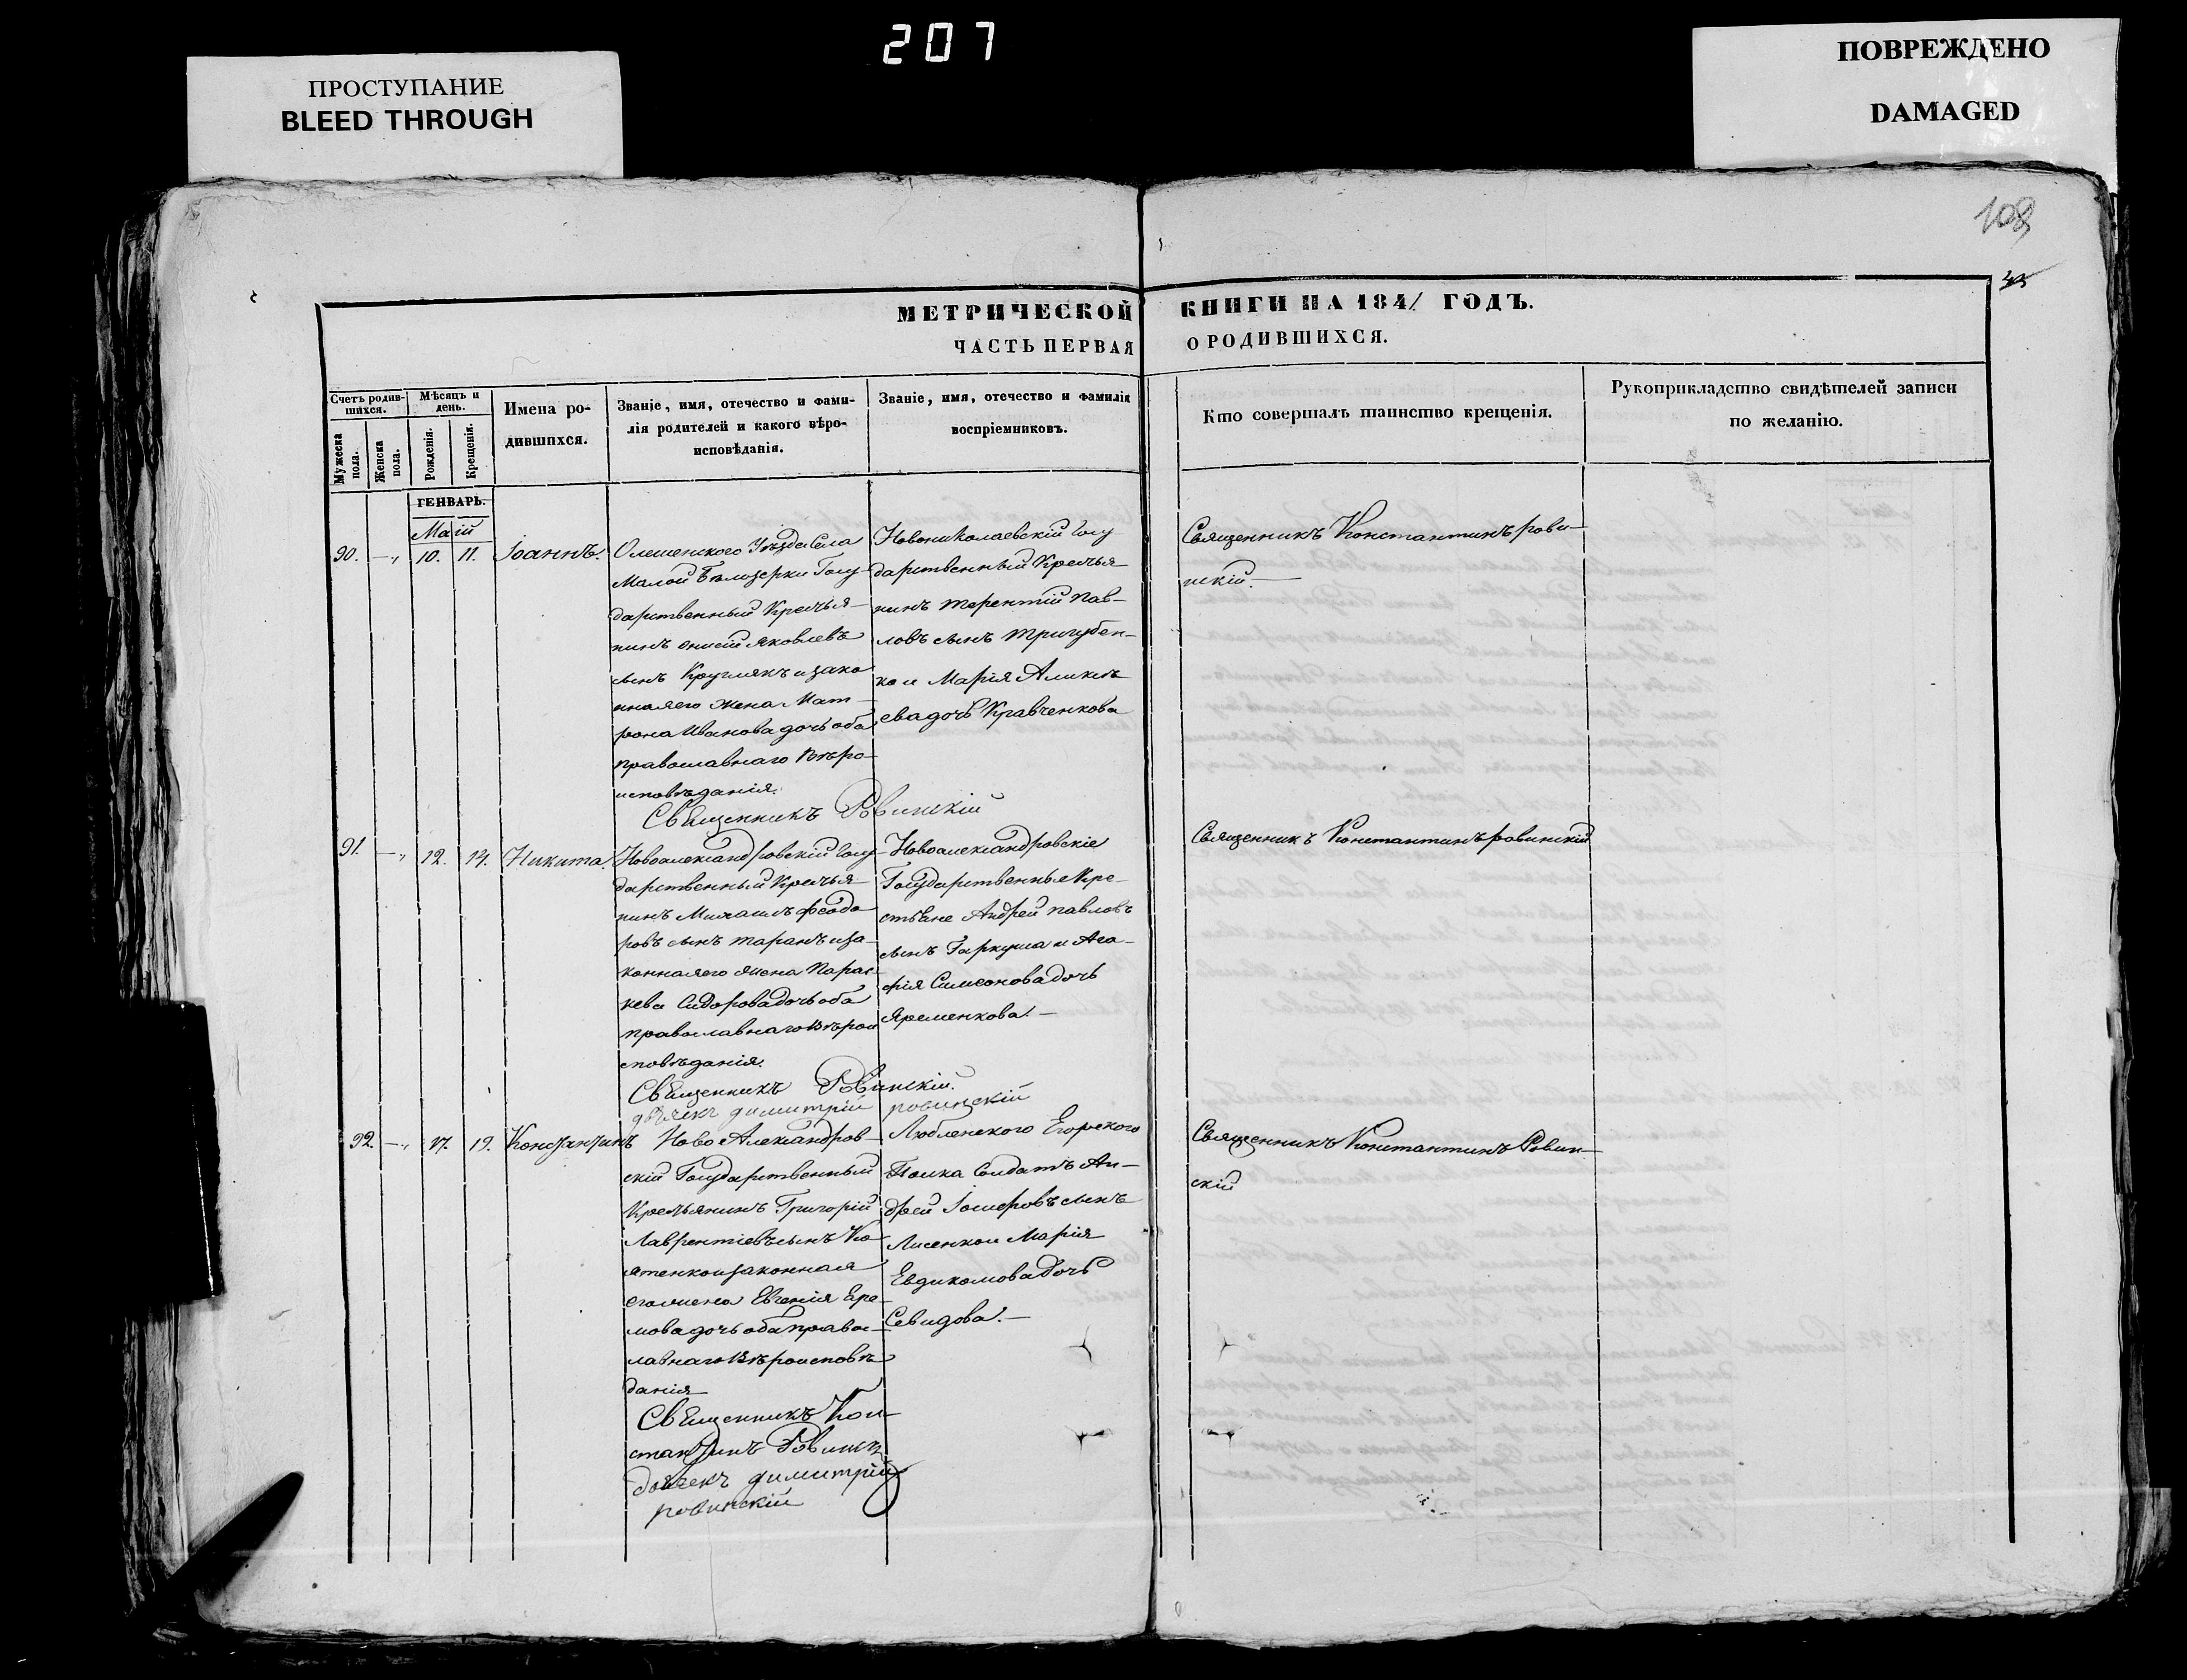 207
ПРОСТУПАНИЕ
BLEED THROUGH
ПОВРЕЖДЕНО
DAMAGED
108
МЕТРИЧЕСКОЙ КНИГИ НА 1841 ГОДЪ.
ЧАСТЬ ПЕРВАЯ О РОДИВШИХСЯ.
Счетъ родив-
шихся.
Мужеска
пола.
Женска
пола.
Мѣсяцъ и
день.
Рожденія.
Крещенія.
Имена ро-
дившихся.
Званіе, имя, отечество и фами-
лія родителей и какого вѣро-
исповѣданія.
Званіе, имя, отечество и фамилія
воспріемниковъ.
Кто совершалъ таинство крещенія.
Рукоприкладство свидѣтелей записи
по желанію.
ГЕНВАРЬ.
Маій
90. — 10. 11. Іоаннъ.
Олешенского Уѣзда Села
Малой Бѣлозерки Госу-
дарственный Крестья-
нинъ Онисій Яковлевъ
сынъ Круглякъ и зако
нная его жена Мат-
рона Иванова дочь оба
православнаго Вѣро-
исповѣданія.
Новониколаевскій Госу
дарственный Крестья
нинъ Терентій Пав-
ловъ сынъ Тригубен-
ко и Марія
ева дочь Кравченкова
Священникъ Константинъ Рови-
нскій.
Священникъ Ровинскій
91. — 12. 14. Никита.
Новоалександровскій Госу-
дарственный Крестья
нинъ Михаилъ Феодо
ровъ сынъ Таранъ и за-
конная его жена Парас-
кева Сидорова дочь оба
православнаго Вѣрои
сповѣданія.
Новоалександровскіе
Государственные Кре-
стьяне Андрей Павловъ
сынъ Гаркуша и Ага-
фія Симеонова дочь
Яременкова.
Священникъ Константинъ Ровинскій
Священникъ Ровинскій.
дьячекъ димитрій ровинскій
92. — 17. 19. Константинъ
Ново Александров-
скій Государственный
Крестьянинъ Григорій
Лаврентіевъ сынъ Ко
ятенко и законная
его жена Евгенія Ефре-
мова дочь оба правос-
лавнаго Вѣроисповѣ
данія
Любленского Егорского
Полка Солдатъ Ан-
дрей сынъ
Лисенко и Марія
Евдокимова дочь
Севидова.
Священникъ Константинъ Ровин-
скій
Священникъ Кон-
стантинъ Ровинск
дьячекъ димитрій
ровинскій